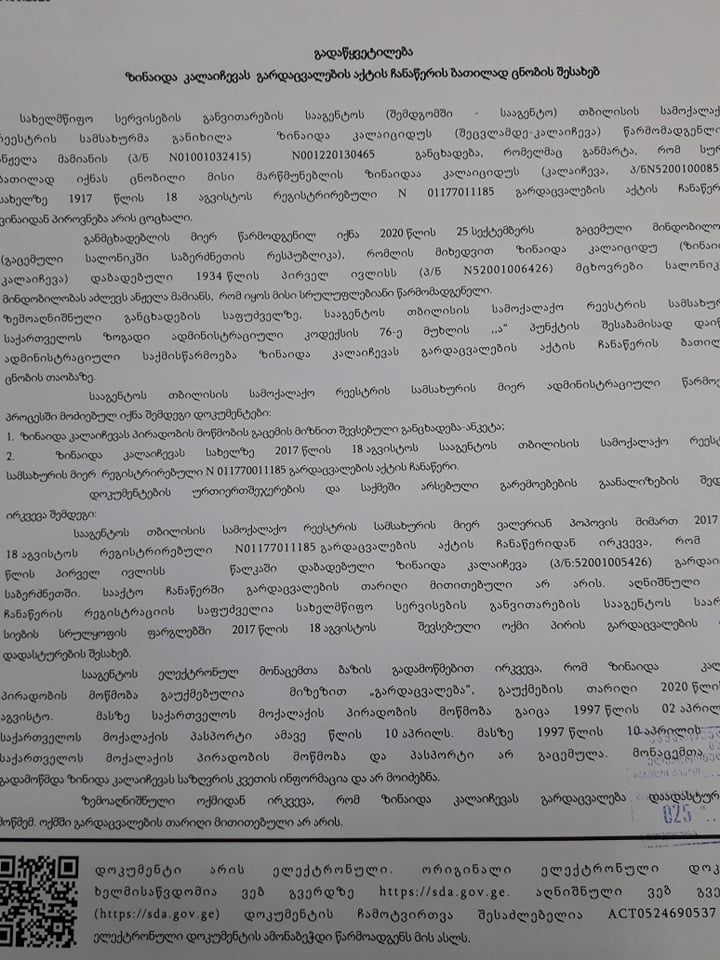 გადაწყვეტილება
ზინაიდა კალაიჩევას გარდაცვალების აქტის ჩანაწერის ბათილად ცნობის შესახებ
სახელმწიფო სერვისების განვითარების სააგენტოს (შემდგომში - სააგენტო) თბილისის სამოქალაქ
რეესტრის სამსახურმა განიხილა ზინაიდა კალაიციდუს (შეცვლამდე-კალაიჩევა) წარმომადგენლი
ანჟელა მამიანის (პ/ნ N01001032415) N001220130465 განცხადება, რომელმაც განმარტა, რომ სურ
ბათილად იქნას ცნობილი მისი მარწმუნებლის ზინაიდაა კალაიციდუს (კალაიჩევა, პ/ნN5200100085
სახელზე 1917 წლის 18 აგვისტოს რეგისტრირებული N 01177011185 გარდაცვალების აქტის ჩანაწერ
ვინაიდან პიროვნება არის ცოცხალი.
განმცხადებლის მიერ წარმოდგენილ იქნა 2020 წლის 25 სექტემბერს გაცემული მინდობილო
(გაცემული სალონიკში საბერძნეთის რესპუბლიკა), რომლის მიხედვით ზინაიდა კალაიციდუ (ზინაი
კალაიჩევა) დაბადებული 1934 წლის პირველ ივლისს (პ/ნ N52001006426) მცხოვრები სალონიკ
მინდობილობას აძლევს ანჟელა მამიანს, რომ იყოს მისი სრულუფლებიანი წარმომადგენელი.
ზემოაღნიშნული განცხადების საფუძველზე, სააგენტოს თბილისის სამოქალაქო რეესტრის სამსახურ
საქართველოს ზოგადი ადმინისტრაციული კოდექსის 76-ე მუხლის ,,ა“ პუნქტის შესაბამისად დაიწ
ადმინისტრაციული საქმისწარმოება ზინაიდა კალაიჩევას გარდაცვალების აქტის ჩანაწერის ბათილ
ცნობის თაობაზე.
სააგენტოს თბილისის სამოქალაქო რეესტრის სამსახურის მიერ ადმინისტრაციული წარმოე
პროცესში მოძიებულ იქნა შემდეგი დოკუმენტები:
1. ზინაიდა კალაიჩევას პირადობის მოწმობის გაცემის მიზნით შევსებული განცხადება-ანკეტა;
2. ზინაიდა კალაიჩევას სახელზე 2017 წლის 18 აგვისტოს სააგენტოს თბილისის სამოქალაქო რეესტ
სამსახურის მიერ რეგისტრირებული N 011770011185 გარდაცვალების აქტის ჩანაწერი.
დოკუმენტების ურთიერთშეჯერების და საქმეში არსებული გარემოებების გაანალიზების შედ
ირკვევა შემდეგი:
სააგენტოს თბილისის სამოქალაქო რეესტრის სამსახურის მიერ ვალერიან პოპოვის მიმართ 2017
18 აგვისტოს რეგისტრირებული N01177011185 გარდაცვალების აქტის ჩანაწერიდან ირკვევა, რომ
წლის პირველ ივლისს წალკაში დაბადებული ზინაიდა კალაიჩევა (პ/ნ:52001005426) გარდაი
საბერძნეთში. სააქტო ჩანაწერში გარდაცვალების თარიღი მითითებული არ არის. აღნიშნული
ჩანაწერის რეგისტრაციის საფუძველია სახელმწიფო სერვისების განვითარების სააგენტოს საარ
სიების სრულყოფის ფარგლებში 2017 წლის 18 აგვისტოს შევსებული ოქმი პირის გარდაცვალების
დადასტურების შესახებ.
სააგენტოს ელექტრონულ მონაცემთა ბაზის გადამოწმებით ირკვევა, რომ ზინაიდა კალ
პირადობის მოწმობა გაუქმებულია მიზეზით „გარდაცვალება“, გაუქმების თარიღი 2020 წლი
აგვისტო. მასზე საქართველოს მოქალაქის პირადობის მოწმობა გაიცა 1997 წლის 02 აპრილ
საქართველოს მოქალაქის პასპორტი ამავე წლის 10 აპრილს. მასზე 1997 წლის 10 აპრილის
საქართველოს მოქალაქის პირადობის მოწმობა და პასპორტი არ გაცემულა. მონაცემთა
გადამოწმდა ზინიდა კალაიჩევას საზღვრის კვეთის ინფორმაცია და არ მოიძებნა.
ზემოაღნიშნული ოქმიდან ირკვევა, რომ ზინაიდა კალაიჩევას გარდაცვალება დაადასტურ
მოწმემ. ოქმში გარდაცვალების თარიღი მითითებული არ არის.
025
დოკუმენტი არის ელექტრონული. ორიგინალი ელექტრონული დოკ
ხელმისაწვდომია ვებ გვერდზე https://sda.gov.ge. აღნიშნული ვებ გვე
(https://sda.gov.ge) დოკუმენტის ჩამოტვირთვა შესაძლებელია ACT0524690537
ელექტრონული დოკუმენტის ამონაბეჭდი წარმოადგენს მის ასლს.